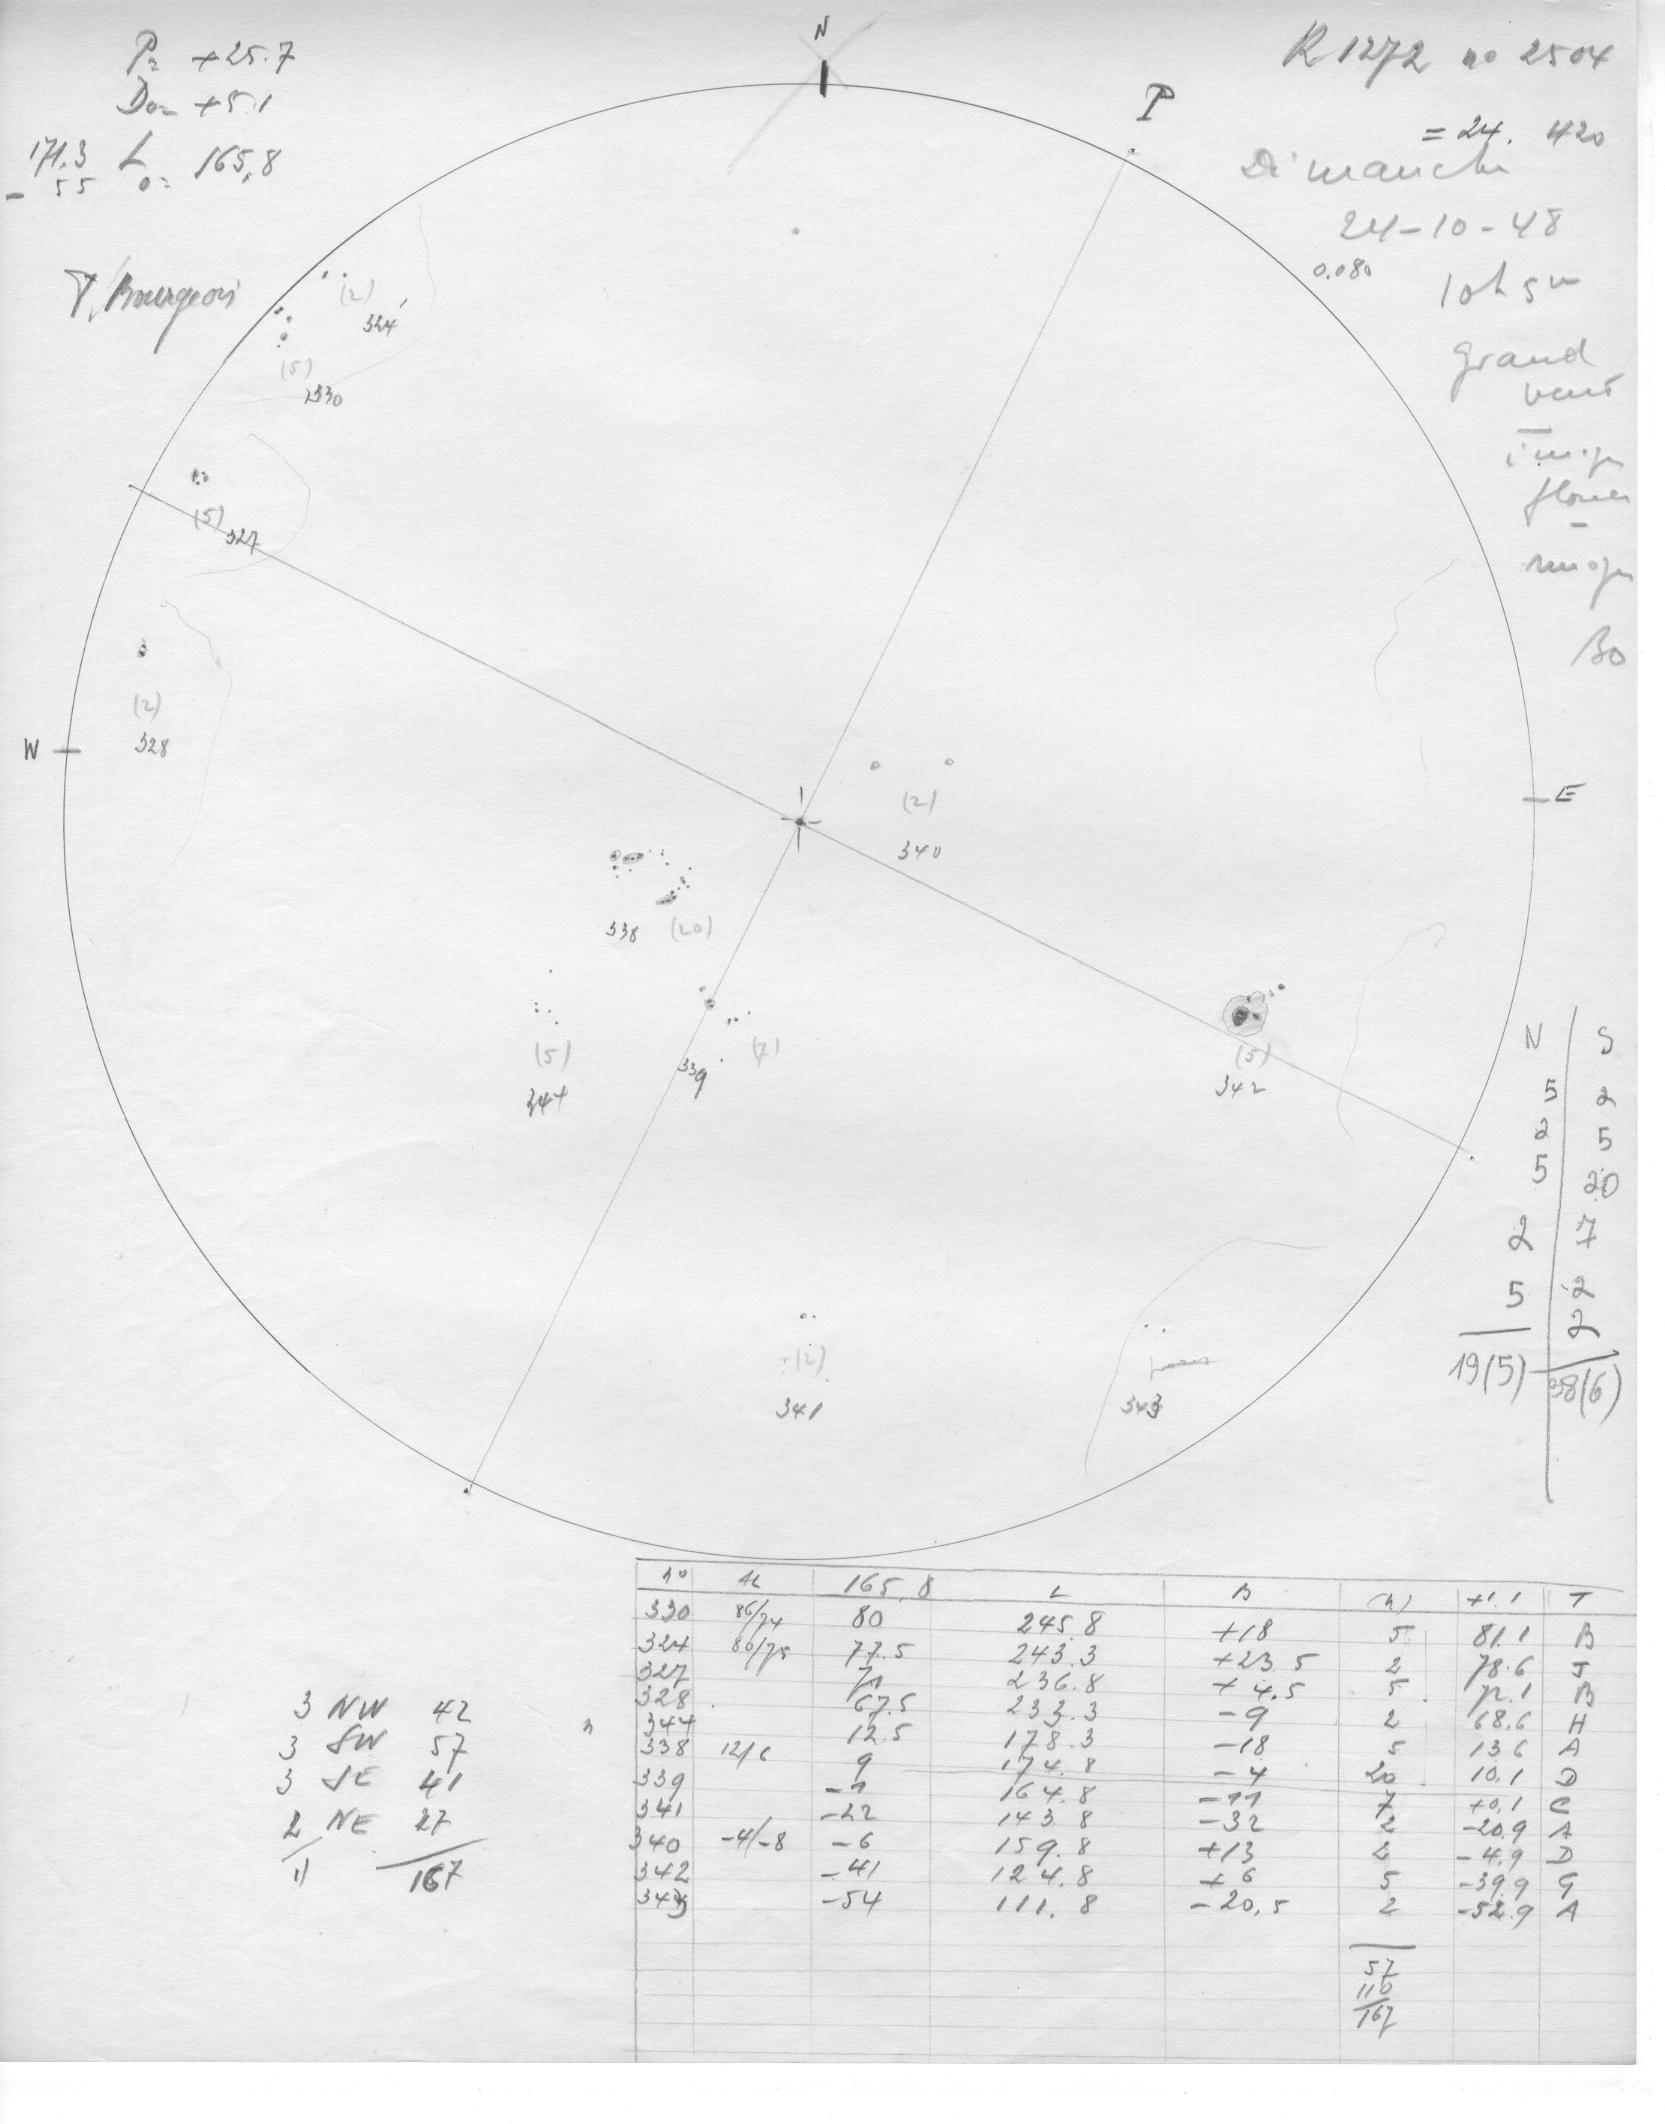 P= +25.7
Do= +5.1
171.3 L
- 5 5 o= 165,8
P. Bourgeois
N
P
R 1272 no 2504
= 24. 420
Dimanche
24-10-48
0.080
10h 5m
grand
vent
images
floues
nuages
Bo
(2)
324
(5)
330
(5)
327
(2)
328
W
E
(2)
340
338 (20)
(5)
344
(7)
339
(5)
342
(2)
341
343
N S
5 2
2 5
5 20
2 7
5 2
2
19(5) 38(6)
3 NW 42
3 SW 57
3 SE 41
2 NE 27
11 167
n° 165,8 L B (h) +1.1 T
330 86/74 80 245.8 +18 5 81.1 B
324 80/75 77.5 243.3 +23.5 2 78.6 J
327 71 236.8 +4.5 5 72.1 B
328 67.5 233.3 -9 2 68.6 H
344 12.5 178.3 -18 5 13.6 A
338 12/6 9 174.8 -4 20 10.1 D
339 -1 164.8 -11 7 +0.1 C
341 -22 143.8 -32 2 -20.9 A
340 -4/-8 -6 159.8 +13 2 -4.9 D
342 -41 124.8 +6 5 -39.9 G
343 -54 111.8 -20.5 2 -52.9 A
57
110
167